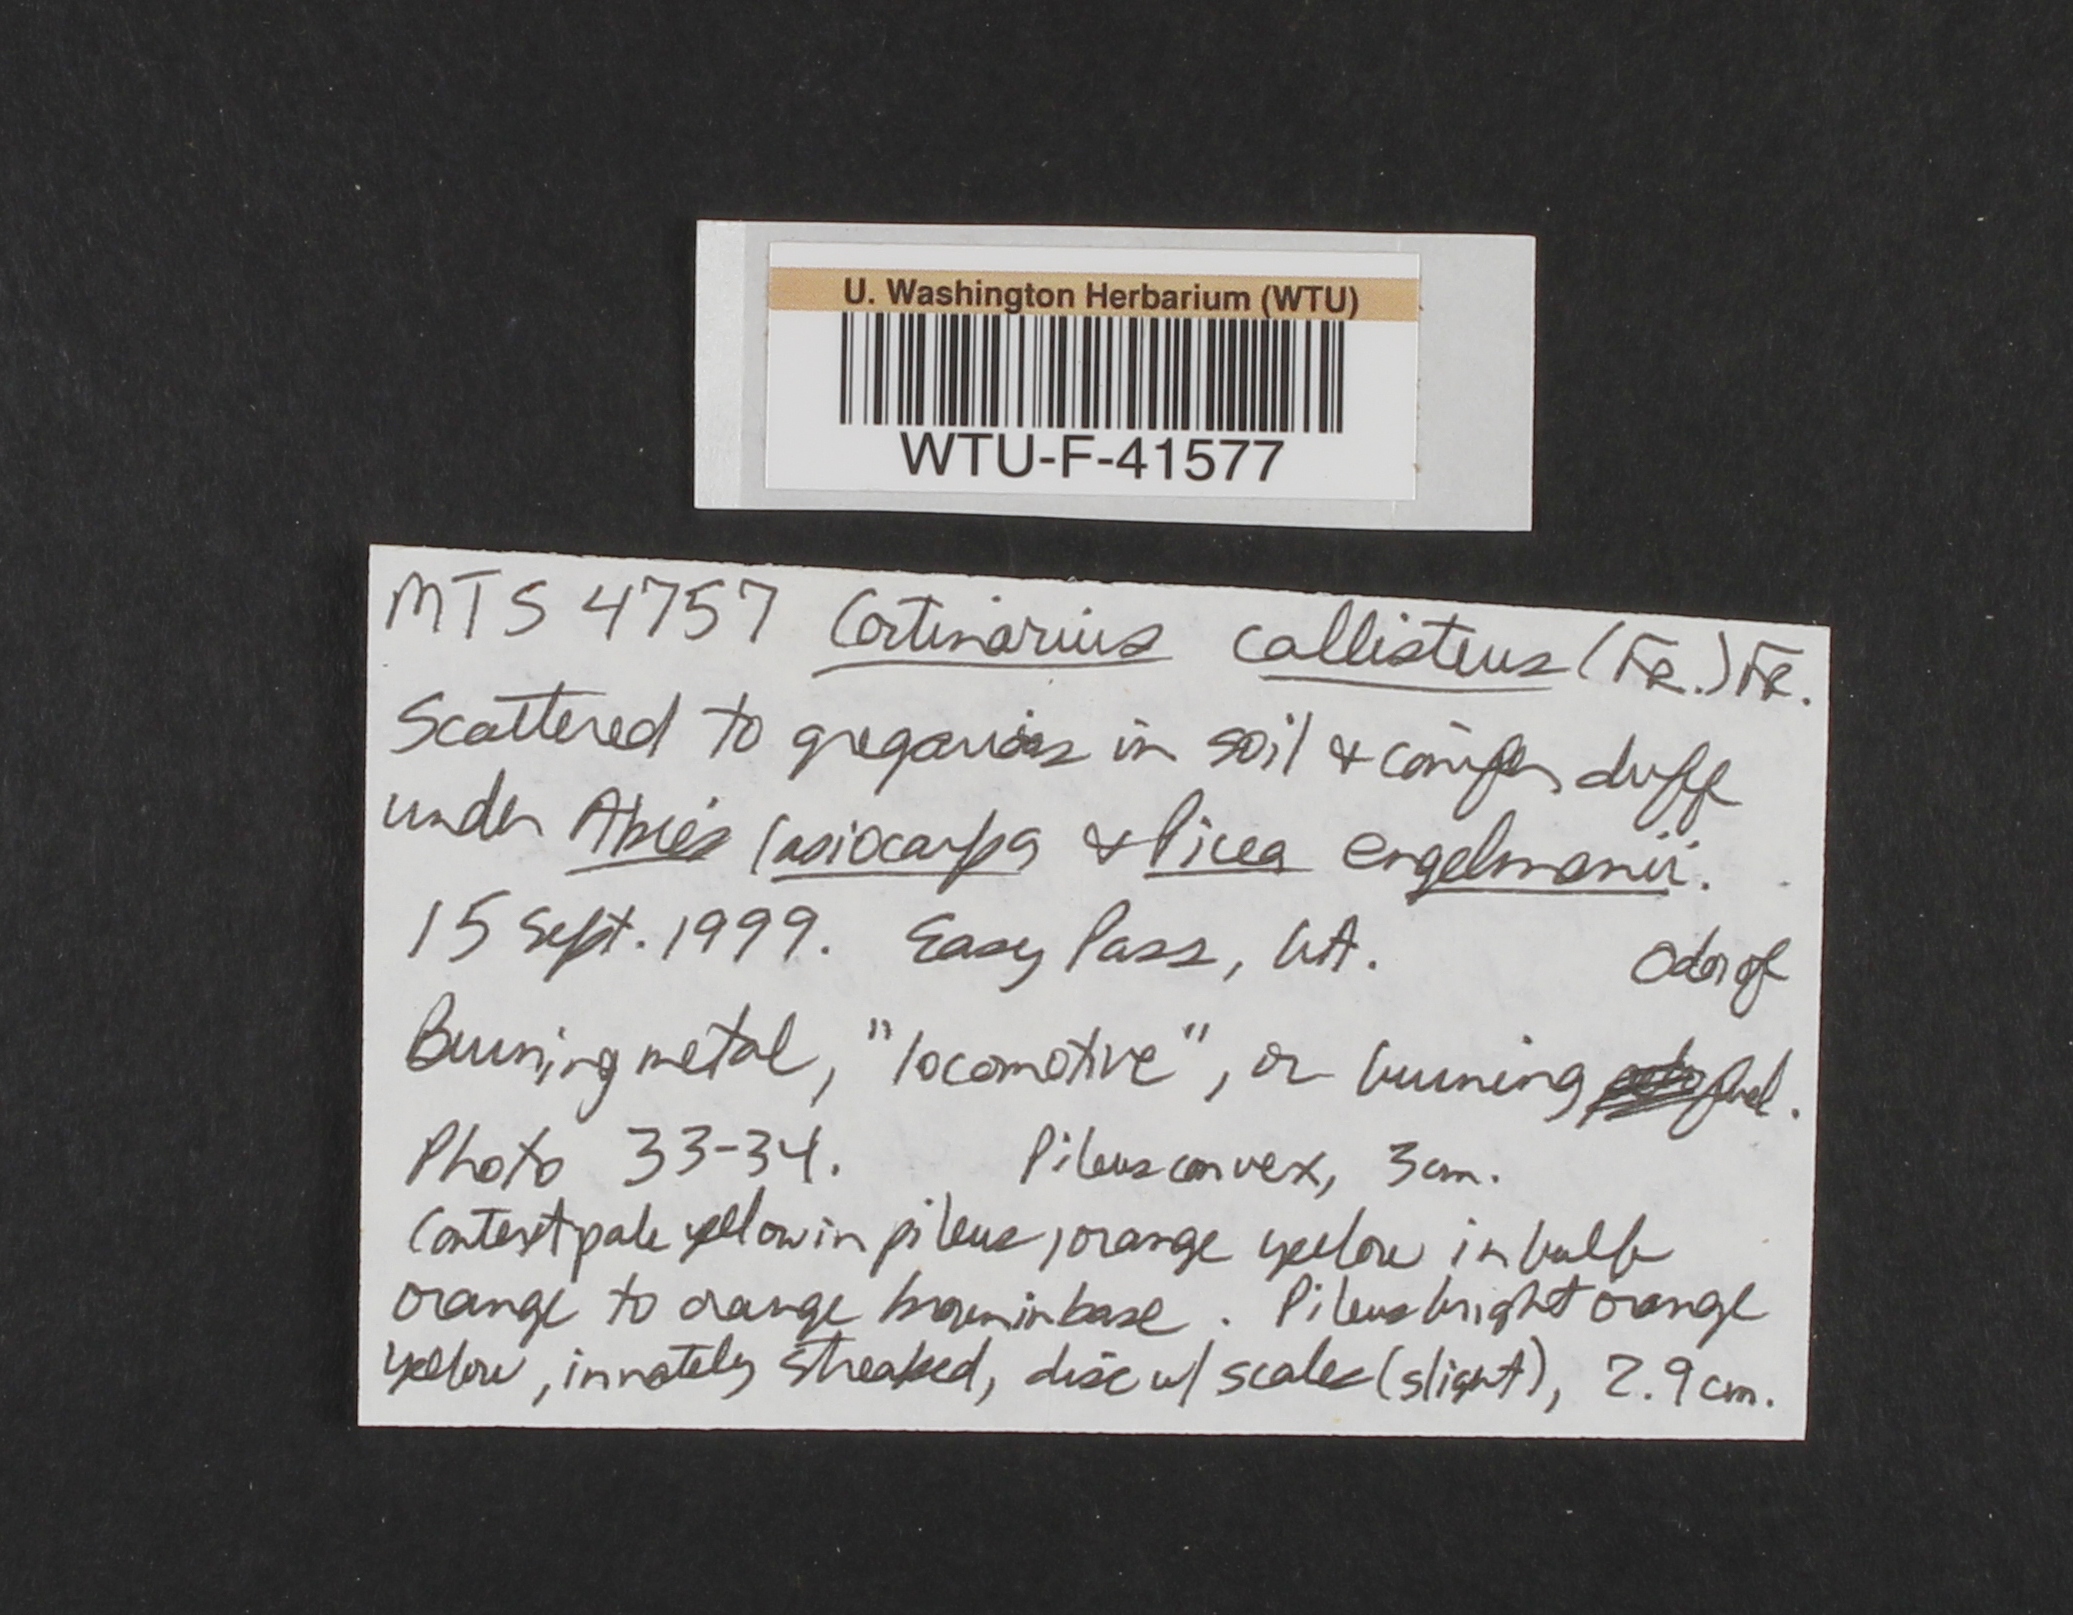 U. Washington Herbarium (WTU)
WTU-F-41577
MTS 4757 Cortinarius callisteus (Fr.) Fr.
Scattered to gregarious in soil & conifer duff
under Abies lasiocarpa & Picea engelmanii.
15 Sept. 1999. Easy Pass, WA. Odor of
Burning metal, "locomotive", or burning fuel.
Photo 33-34. Pileus convex, 3 cm.
Context pale yellow in pileus, orange yellow in bulb
orange to orange brown in base. Pileus bright orange
yellow, innately streaked, disc w/ scales (slight), 2.9 cm.